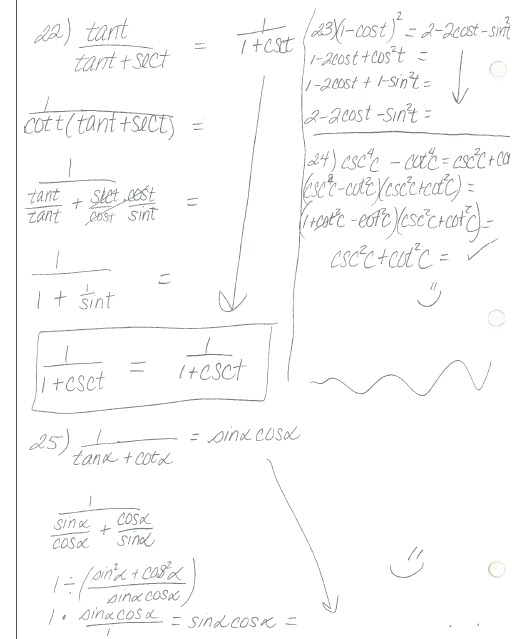 22) tant / (tant + sect) = 1 / (1 + csct)
1 / (cott(tant + sect)) =
1 / (tant/tant + sect/cost · cost/sint) =
1 / (1 + 1/sint) =
1 / (1 + csct) = 1 / (1 + csct)
23) (1 - cost)² = 2 - 2cost - sin²t
1 - 2cost + cos²t =
1 - 2cost + 1 - sin²t =
2 - 2cost - sin²t =
24) csc⁴c - cot⁴c = csc²c + co
(csc²c - cot²c)(csc²c + cot²c) =
(1 + cot²c - cot²c)(csc²c + cot²c) =
csc²c + cot²c = ✓
25) 1 / (tanα + cotα) = sinα cosα
1 / (sinα/cosα + cosα/sinα)
1 ÷ ((sin²α + cos²α) / (sinα cosα))
1 · (sinα cosα)/1 = sinα cosα =